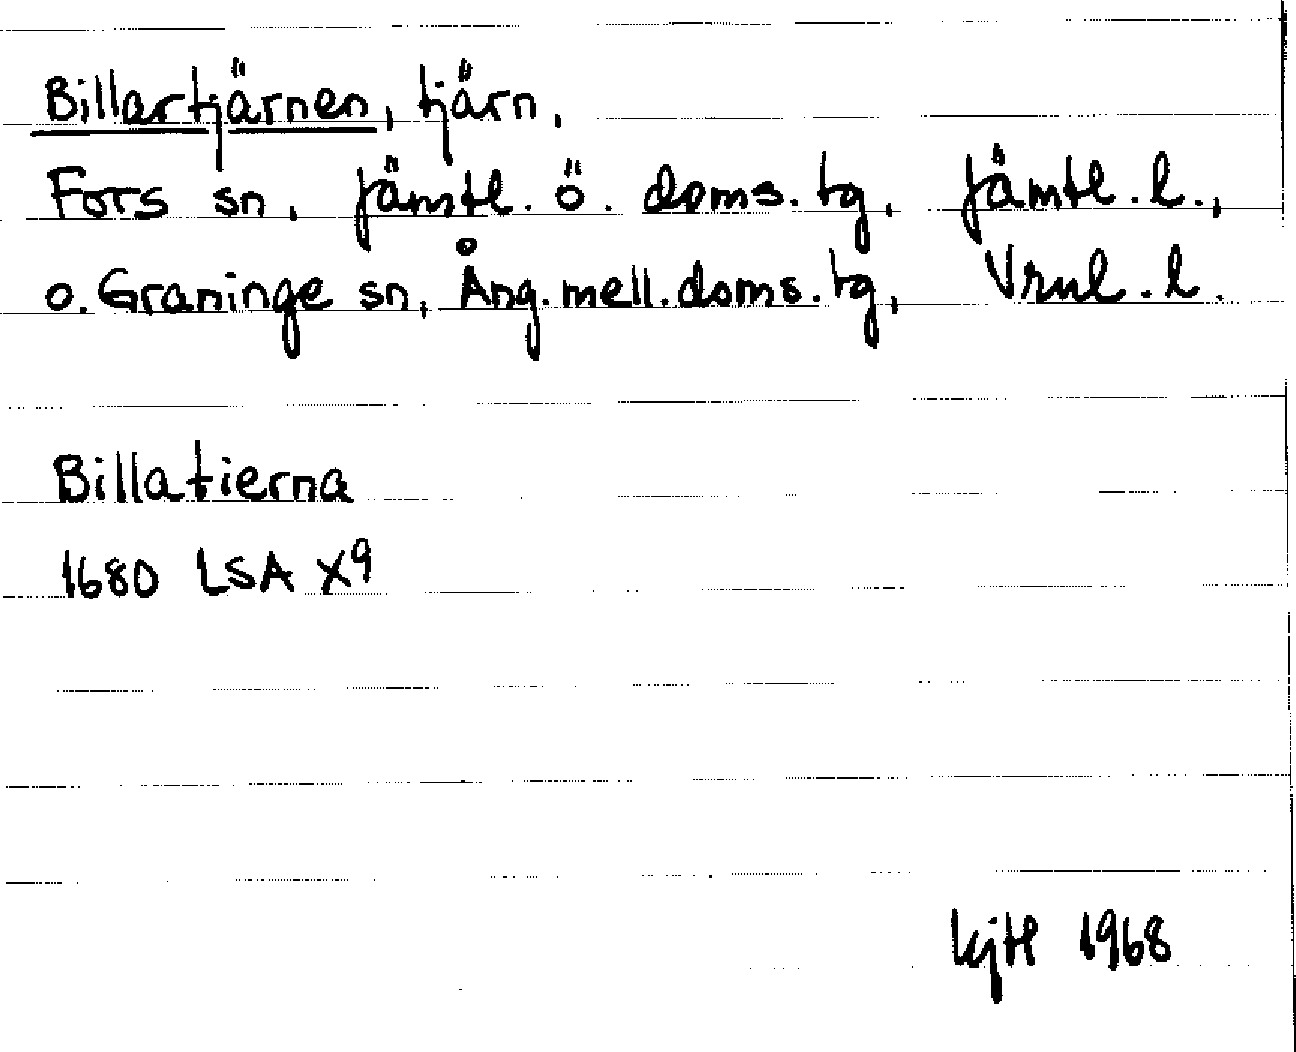 Billartjärnen, tjärn.
Fors sn, Jämtl. ö. doms. tg, Jämtl. l.,
o. Graninge sn, Ång. mell. doms. tg, Vrnl. l.
Billatierna
1680 LSA X9
1968